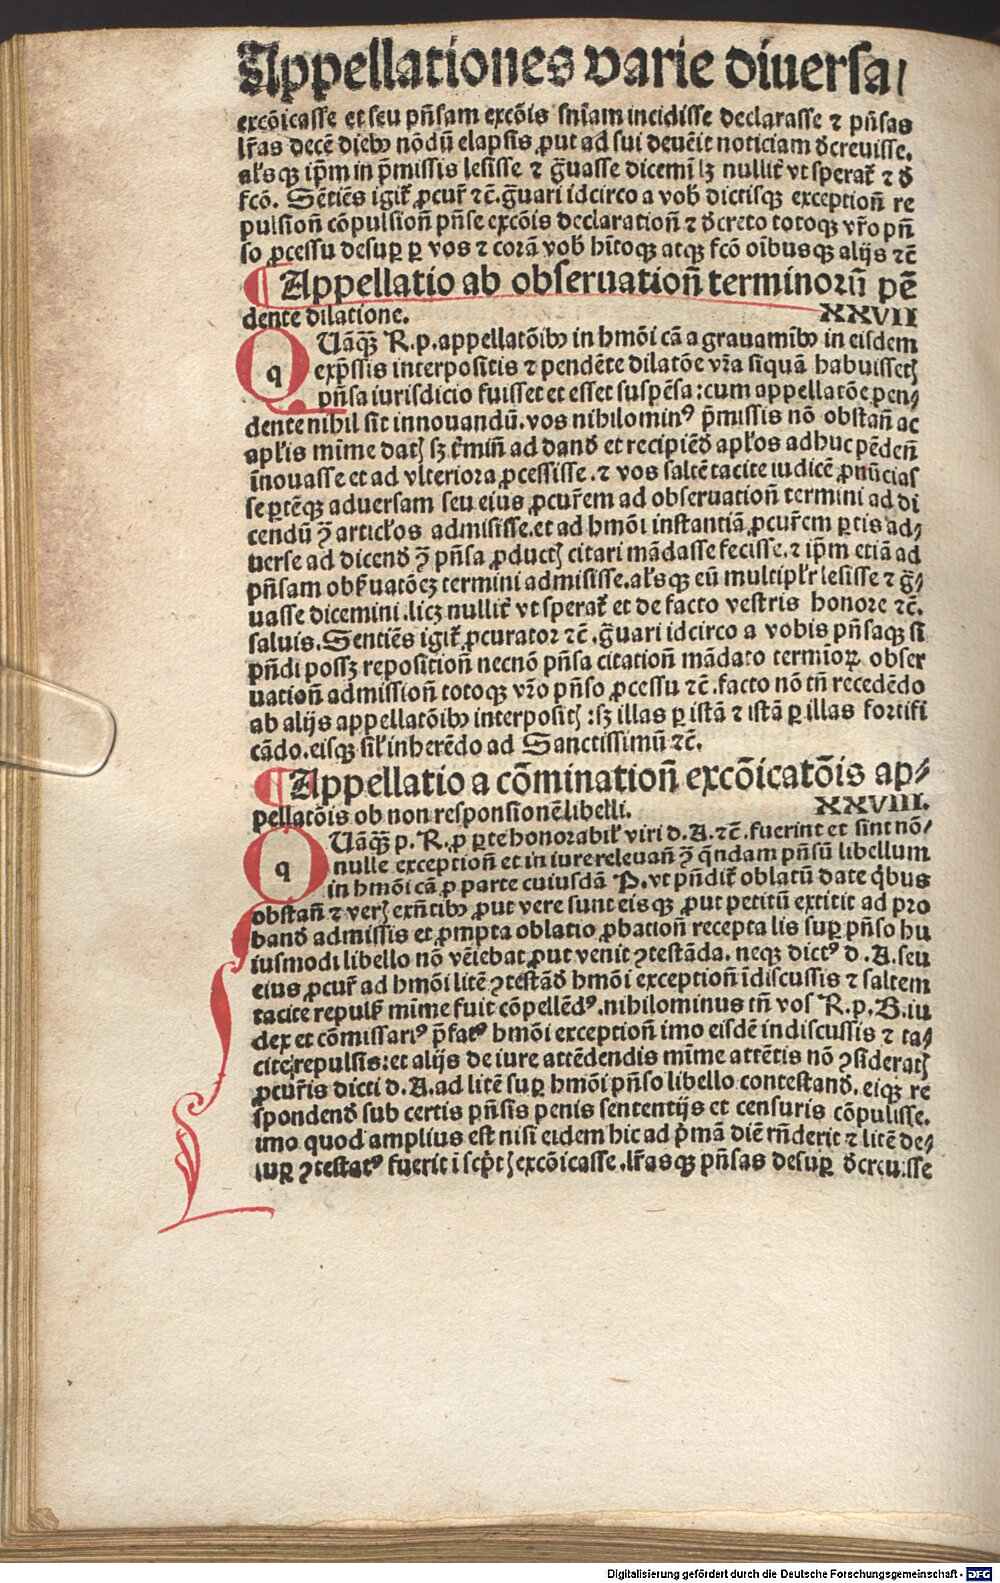 Appellationes varie diuersa/
excōicasse et seu pn̄sam excōis sn̄iam incidisse declarasse ⁊ pn̄sas
lr̄as decē dieb⁹ nōdū elapsis ꝓut ad sui deuēit noticiam d̄creuisse.
al̓sqꝫ ip̄m in p̄missis lesisse ⁊ gr̄uasse dicemī lꝫ nullit̓ vt sperat̓ ⁊ d̄
fcō. Sētiēs igit̓ ꝓcur̓ ⁊c̄. gr̄uari idcirco a vob̓ dictisqꝫ exceptioñ re
pulsioñ cōpulsioñ pn̄se excōis declaratioñ ⁊ d̄creto totoqꝫ vr̄o pn̄
so ꝓcessu desuꝑ ꝑ vos ⁊ corā vob̓ hītoqꝫ atqꝫ fcō oībusqꝫ alijs ⁊c̄
¶ Appellatio ab obseruatioñ terminorū pē
dente dilatione. XXVII
QUāqꝫ R.p. appellatōib⁹ in hmōi cā a grauamīb⁹ in eisdem
exp̄ssis interpositis ⁊ pendēte dilatōe vr̄a siquā habuissetꝭ
pn̄sa iurisdicio fuisset et esset suspēsa: cum appellatōe pen/
dente nihil sit innouandū. vos nihilomin⁹ p̄missis nō obstañ ac
apl̓is mīme datꝭ sꝫ t̓miñ ad dand̓ et recipiēd̓ apl̓os adhuc pēdeñ
īnouasse et ad vlteriora ꝓcessisse. ⁊ vos saltē tacite iudicē ꝓnūcias
se ꝑtēqꝫ aduersam seu eius ꝓcur̄em ad obseruatioñ termini ad di
cendū ꝯ̄ articl̓os admisisse. et ad hmōi instantiā ꝓcur̄em ꝑtis ad/
uerse ad dicend̓ ꝯ̄ pn̄sa ꝓductꝭ citari mādasse fecisse. ⁊ ip̄m etiā ad
pn̄sam obẜuatōeꝫ termini admisisse. al̓sqꝫ eū multipl̓r lesisse ⁊ gr̄/
uasse dicemini. licꝫ nullit̓ vt sperat̓ et de facto vestris honore ⁊c̄.
saluis. Sentiēs igit̓ ꝓcurator ⁊c̄. gr̄uari idcirco a vobis pn̄saqꝫ si
pn̄di possꝫ repositioñ necnō pn̄sa citatioñ mādato termīoꝝ obser
uatioñ admissioñ totoqꝫ vr̄o pn̄so ꝓcessu ⁊c̄. facto nō tn̄ recedēdo
ab alijs appellatōib⁹ interpositꝭ: sꝫ illas ꝑ istā ⁊ istā ꝑ illas fortifi
cādo. eisqꝫ sil̓ inherēdo ad Sanctissimū ⁊c̄.
¶ Appellatio a cōminatioñ excōicatōis ap/
pellatōis ob non responsionē libelli. XXVIII.
QUāqꝫ p. R. p ꝑte honorabil̓ viri d. A. ⁊c̄. fuerint et sint nō/
nulle exceptioñ et in iure releuañ ꝯ̄ q̄ndam pn̄sū libellum
in hmōi cā ꝓ parte cuiusdā P. vt pn̄dit̓ oblatū date qͥbus
obstañ ⁊ verꝭ exn̄tib⁹ ꝓut vere sunt eisqꝫ ꝓut petitū extitit ad pro
band̓ admissis et ꝓmpta oblatio ꝓbatioñ recepta lis suꝑ pn̄so hu
iusmodi libello nō vēiebat ꝓut venit ꝯtestāda. neqꝫ dict⁹ d. A. seu
eius ꝓcur̓ ad hmōi litē ꝯtestād̓ hmōi exceptioñ īdiscussis ⁊ saltem
tacite repulẜ mīme fuit cōpellēd⁹. nihilominus tn̄ vos R. p. B. iu
dex et cōmissari⁹ p̄fat⁹ hmōi exceptioñ imo eisdē indiscussis ⁊ ta/
cite repulsis: et alijs de iure attēdendis mīme attētis nō ꝯsideratꝭ
ꝓcur̄is dicti d. A. ad litē suꝑ hmōi pn̄so libello contestand̓. eiqꝫ re
spondend̓ sub certis pn̄sis penis sententijs et censuris cōpulisse.
imo quod amplius est nisi eidem hic ad pͥmā diē rn̄derit ⁊ litē de/
suꝑ ꝯtestat⁹ fuerit ī scpͥtꝭ excōicasse. lr̄asqꝫ pn̄sas desuꝑ d̄creuisse
Digitalisierung gefördert durch die Deutsche Forschungsgemeinschaft - DFG